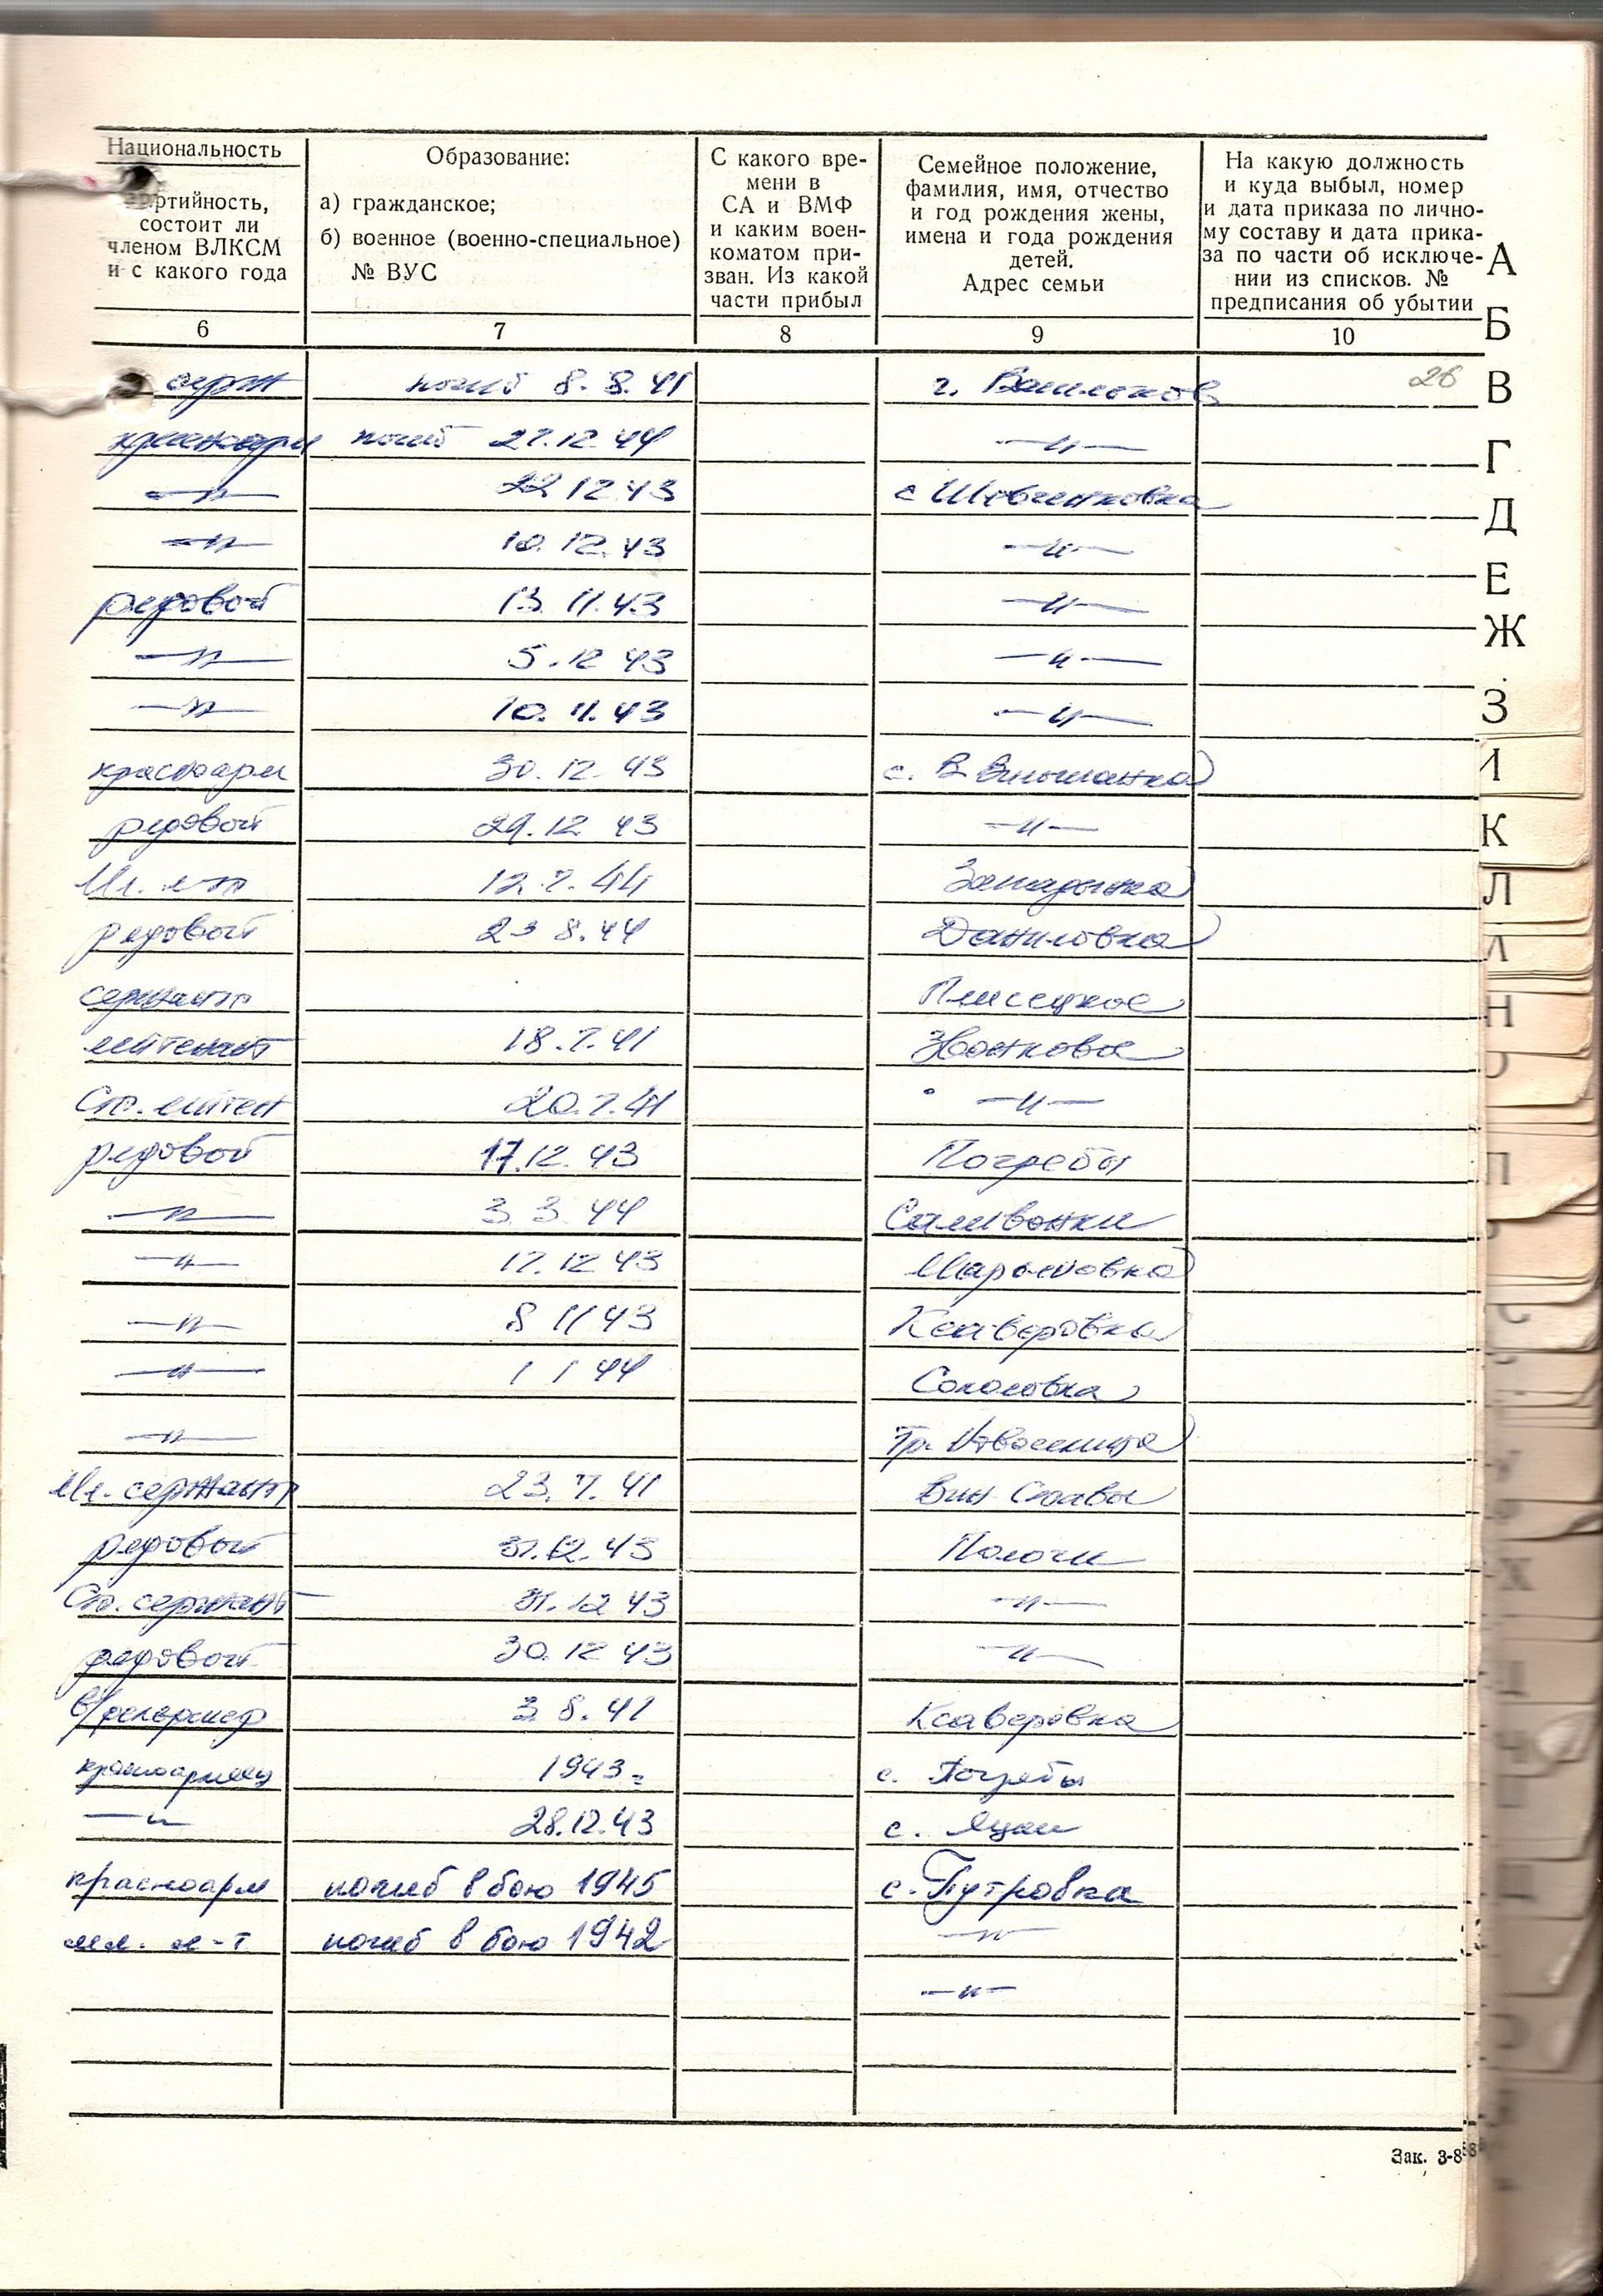 Национальность
партийность,
состоит ли
членом ВЛКСМ
и с какого года
Образование:
а) гражданское;
б) военное (военно-специальное)
№ ВУС
С какого вре-
мени в
СА и ВМФ
и каким воен-
коматом при-
зван. Из какой
части прибыл
Семейное положение,
фамилия, имя, отчество
и год рождения жены,
имена и года рождения
детей.
Адрес семьи
На какую должность
и куда выбыл, номер
и дата приказа по лично-
му составу и дата прика-
за по части об исключе-
нии из списков. №
предписания об убытии
6 7 8 9 10
серж погиб 8.8.41 г. Васильков 26
красноарм погиб 27.12.44 —"—
—"— 22 12 43 с Шевченковка
—"— 10.12.43 —"—
рядовой 13.11.43 —"—
—"— 5.12 43 —"—
—"— 10.11.43 —"—
красноарм 30.12.43 с. В Вильшанка
рядовой 29.12 43 —"—
Мл. л-т 12.7.44
рядовой 23 8.44 Даниловка
сержант Плисецкое
лейтенант 18.7.41 Звонковое
Ст. лейтен 20.7.41 —"—
рядовой 17.12.43 Погребы
—"— 3 3 44 Саливонки
—"— 17.12 43 Марьяновка
—"— 8 11 43 Ксаверовка
—"— 1 1 44 Соколовка
—"—
Мл. сержант 23.7.41 Вин Ставы
рядовой 31.12.43 Пологи
Ст. сержант 31.12 43 —"—
рядовой 30.12 43 —"—
3 8.41 Ксаверовка
красноармеец 1943 с. Погребы
—"— 28.12.43 с. Яцки
красноарм погиб в бою 1945 с. Путровка
мл. л-т погиб в бою 1942 —"—
—"—
А
Б
В
Г
Д
Е
Ж
З
И
К
Л
Н
П
Х
Зак. 3-8